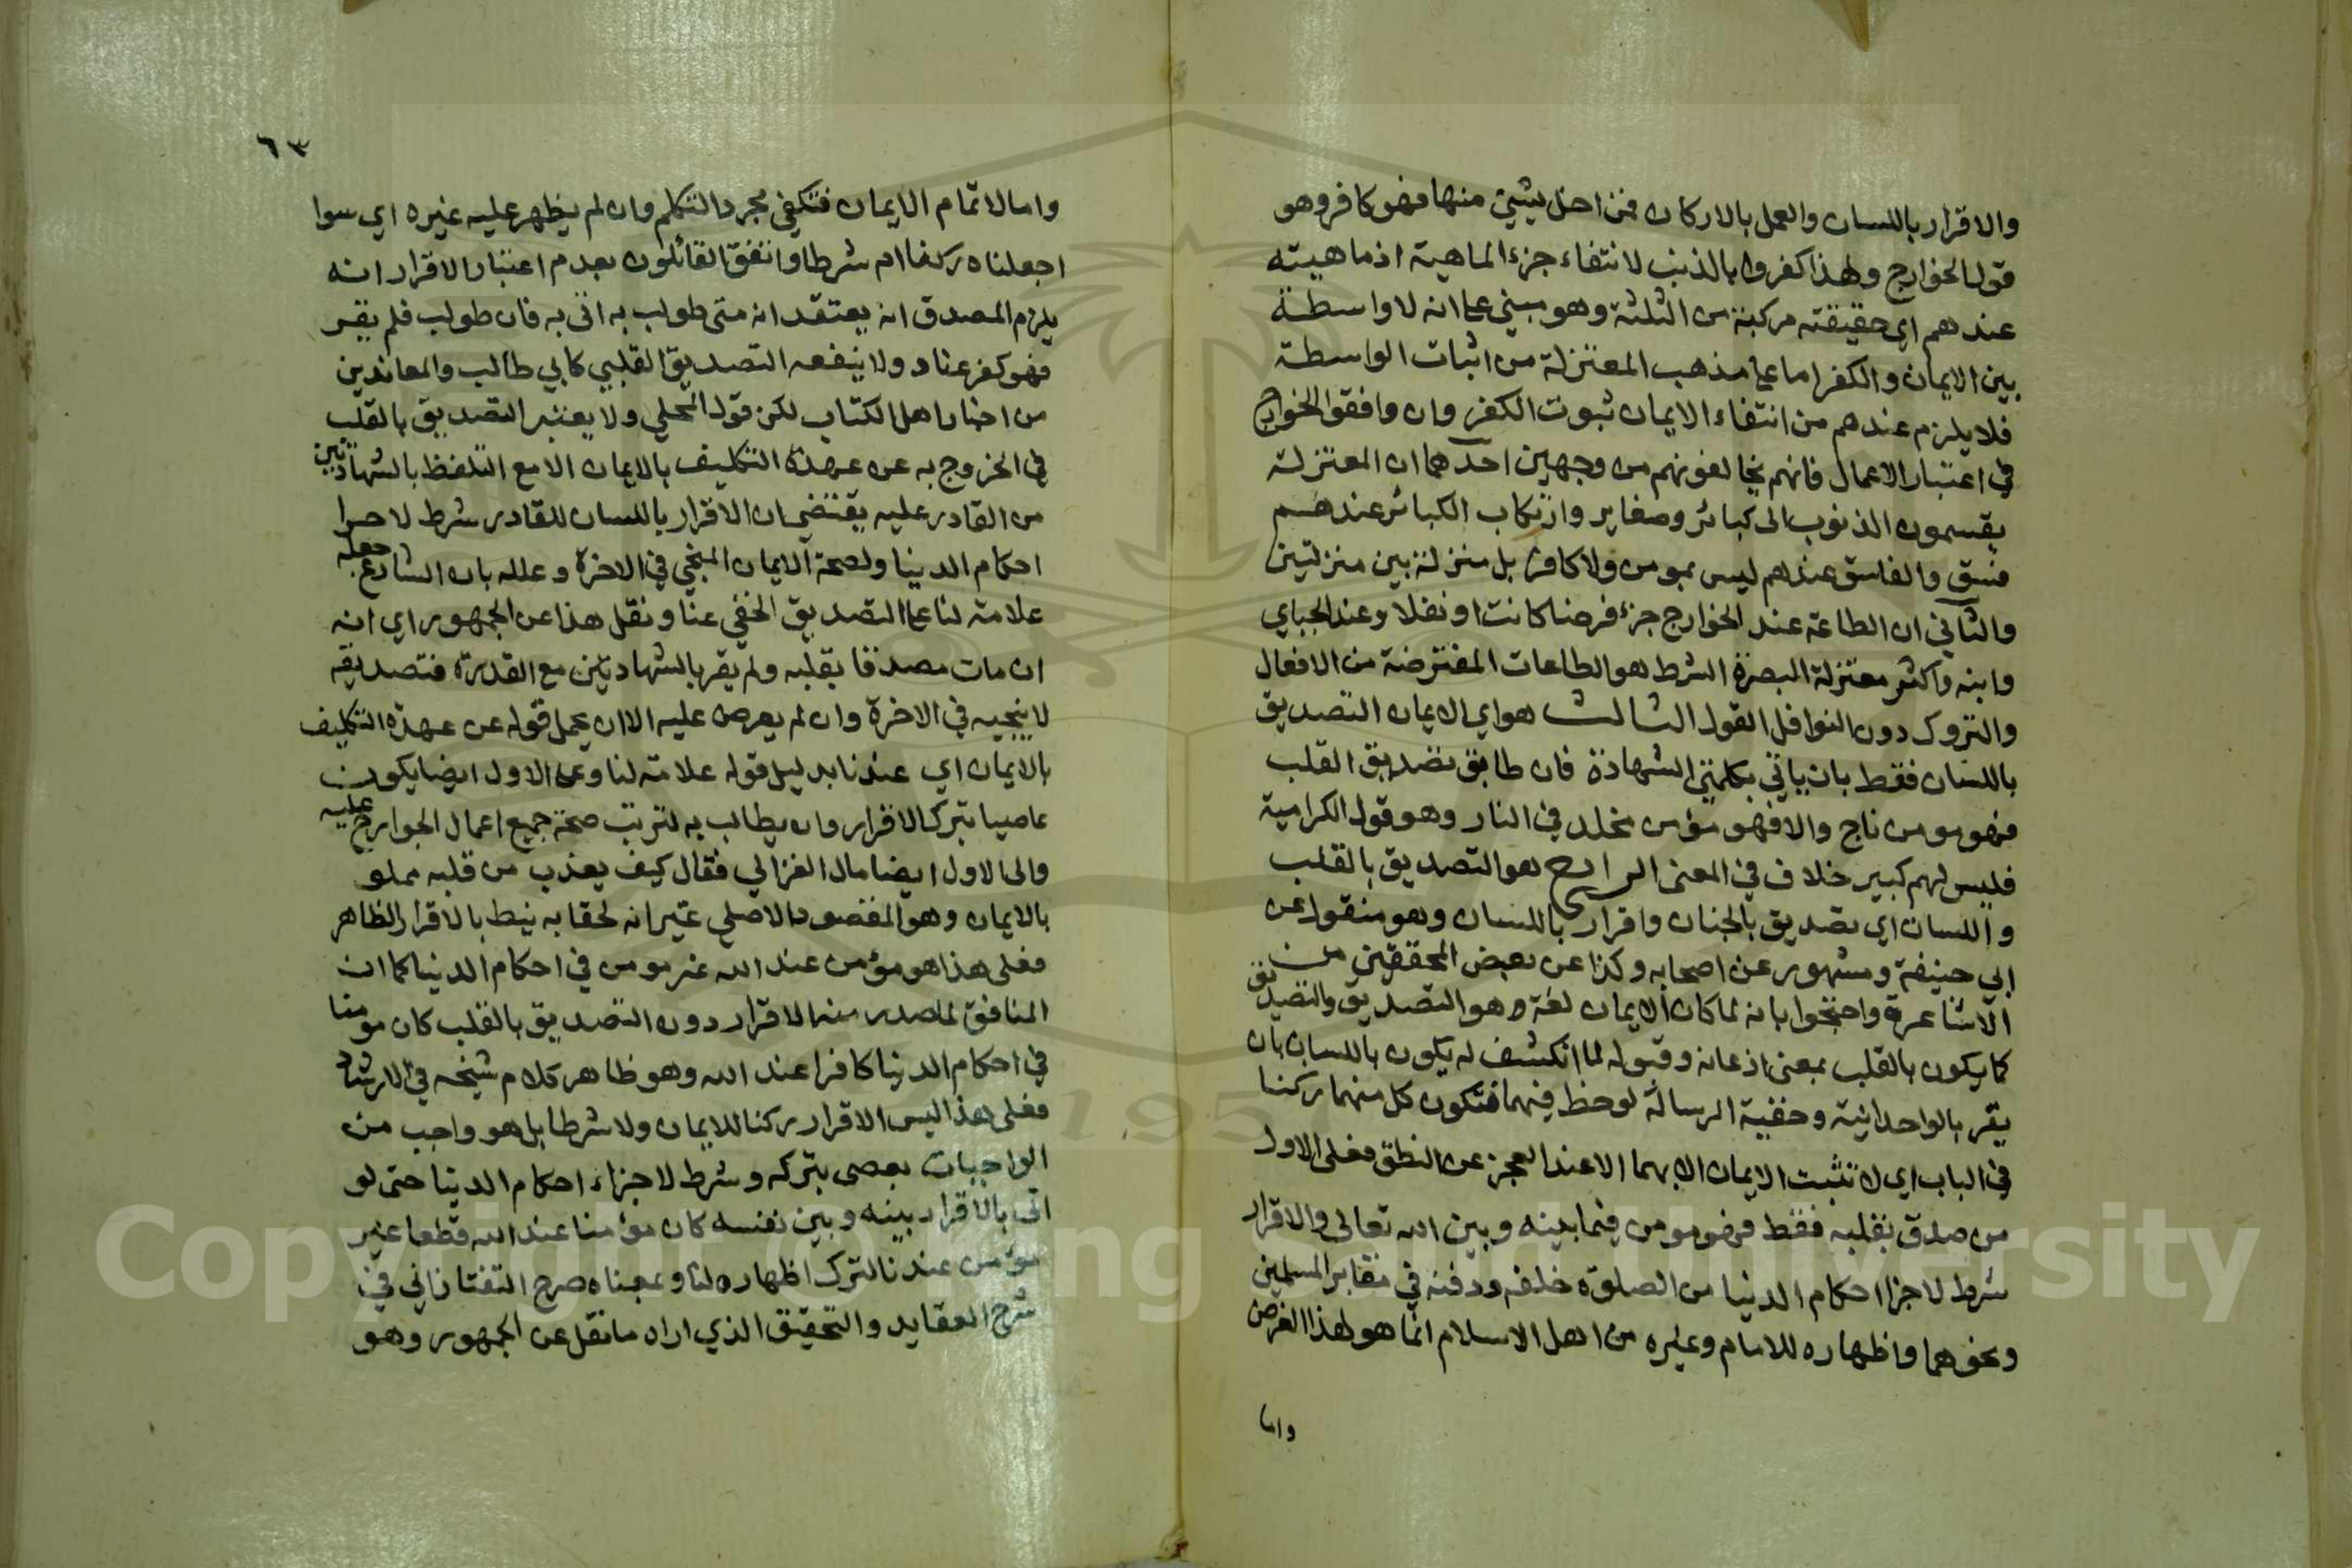 والاقرار باللسان والعمل بالاركان فمن اخل بشيئ منها فهو كافر وهو
قول الخوارج ولهذا كفروا بالذنب لانتفاء جزء الماهية اذ ماهيته
عندهم اي حقيقته مركبة من الثلثة وهو مبني على انه لا واسطة
بين الايمان والكفر اما على مذهب المعتزلة من اثبات الواسطة
فلا يلزم عندهم من انتفاء الايمان ثبوت الكفر وان وافقوا الخوارج
في اعتبار الاعمال فانهم يخالفونهم من وجهين احدهما ان المعتزلة
يقسمون الذنوب الى كبائر وصغاير وارتكاب الكبائر عندهم
فسق والفاسق عندهم ليس بمومن ولا كافر بل منزلة بين منزلتين
والثاني ان الطاعة عند الخوارج جزء فرضا كانت او نفلا وعند الجباي
وابنه واكثر معتزلة البصرة الشرط هو الطاعات المفترضة من الافعال
والتروك دون النوافل القول الثالث هو اي الايمان التصديق
باللسان فقط بان ياتي بكلمتي الشهادة فان طابق تصديق القلب
فهو مومن ناج والا فهو مؤمن مخلد في النار وهو قول الكرامية
فليس لهم كبير خلاف في المعنى الرابع هو التصديق بالقلب
واللسان اي تصديق بالجنان واقرار باللسان وهو منقول عن
ابي حنيفة ومشهور عن اصحابه وكذا عن بعض المحققين من
الاشاعرة واحتجوا بانه لما كان الايمان لغة وهو التصديق والتصديق
كما يكون بالقلب بمعنى اذعانه وقبوله لما انكشف له يكون باللسان بان
يقر بالواحدانية وحقية الرسالة لوحظ فيهما فتكون كل منهما ركنا
في الباب اي لا تثبت الايمان الا بهما الا عند العجز عن النطق فعلى الاول
من صدق بقلبه فقط فهو مومن فيما بينه وبين الله تعالى والاقرار
شرط لاجرا احكام الدنيا من الصلوة خلفه ودفنه في مقابر المسلمين
ونحوهما واظهاره للامام وغيره من اهل الاسلام انما هو لهذا الغرض
واما
٦٣
واما لاتمام الايمان فتكفي مجرد التكلم وان لم يظهر عليه غيره اي سوا
اجعلناه ركنا ام شرطا واتفق القائلون بعدم اعتبار الاقرار انه
يلزم المصدق ان يعتقد انه متى طولب به اتى به فان طولب فلم يقر
فهو كفر عناد ولا ينفعه التصديق القلبي كابي طالب والمعاندين
من احبار اهل الكتاب لكن قول المحلي ولا يعتبر التصديق بالقلب
في الخروج به عن عهدة التكليف بالايمان الا مع التلفظ بالشهادتين
من القادر عليه يقتضي ان الاقرار باللسان للقادر شرط لاجرا
احكام الدنيا ولصحة الايمان المنجي في الاخرة وعلله بان الشارع جعله
علامة لنا على التصديق الخفي عنا ونقل هذا عن الجمهور اي انه
ان مات مصدقا بقلبه ولم يقر بالشهادتين مع القدرة فتصديقه
لا ينجيه في الاخرة وان لم يعرض عليه الا ان يحمل قوله عن عهدة التكليف
بالايمان اي عندنا بدليل قوله علامة لنا وعلى الاول ايضا يكون
عاصيا بترك الاقرار وان يطالب به لترتب صحة جميع اعمال الجوارح عليه
والى الاول ايضا مال الغزالي فقال كيف يعذب من قلبه مملو
بالايمان وهو المقصود الاصلي غير انه لخفائه نيط بالاقرار الظاهر
فعلى هذا هو مؤمن عند الله غير مومن في احكام الدنيا كما ان
المنافق لما صدر منه الاقرار دون التصديق بالقلب كان مومنا
في احكام الدنيا كافرا عند الله وهو ظاهر كلام شيخه في الارشاد
فعلى هذا ليس الاقرار ركنا للايمان ولا شرطا بل هو واجب من
الواجبات يعصى بتركه وشرط لاجزاء احكام الدنيا حتى لو
اتى بالاقرار بينه وبين نفسه كان مؤمنا عند الله قطعا غير
مؤمن عندنا لترك اظهاره لنا وبمعناه صرح التفتازاني في
شرح العقايد والتحقيق الذي اراه ما نقل عن الجمهور وهو
Copyright © King Saud University